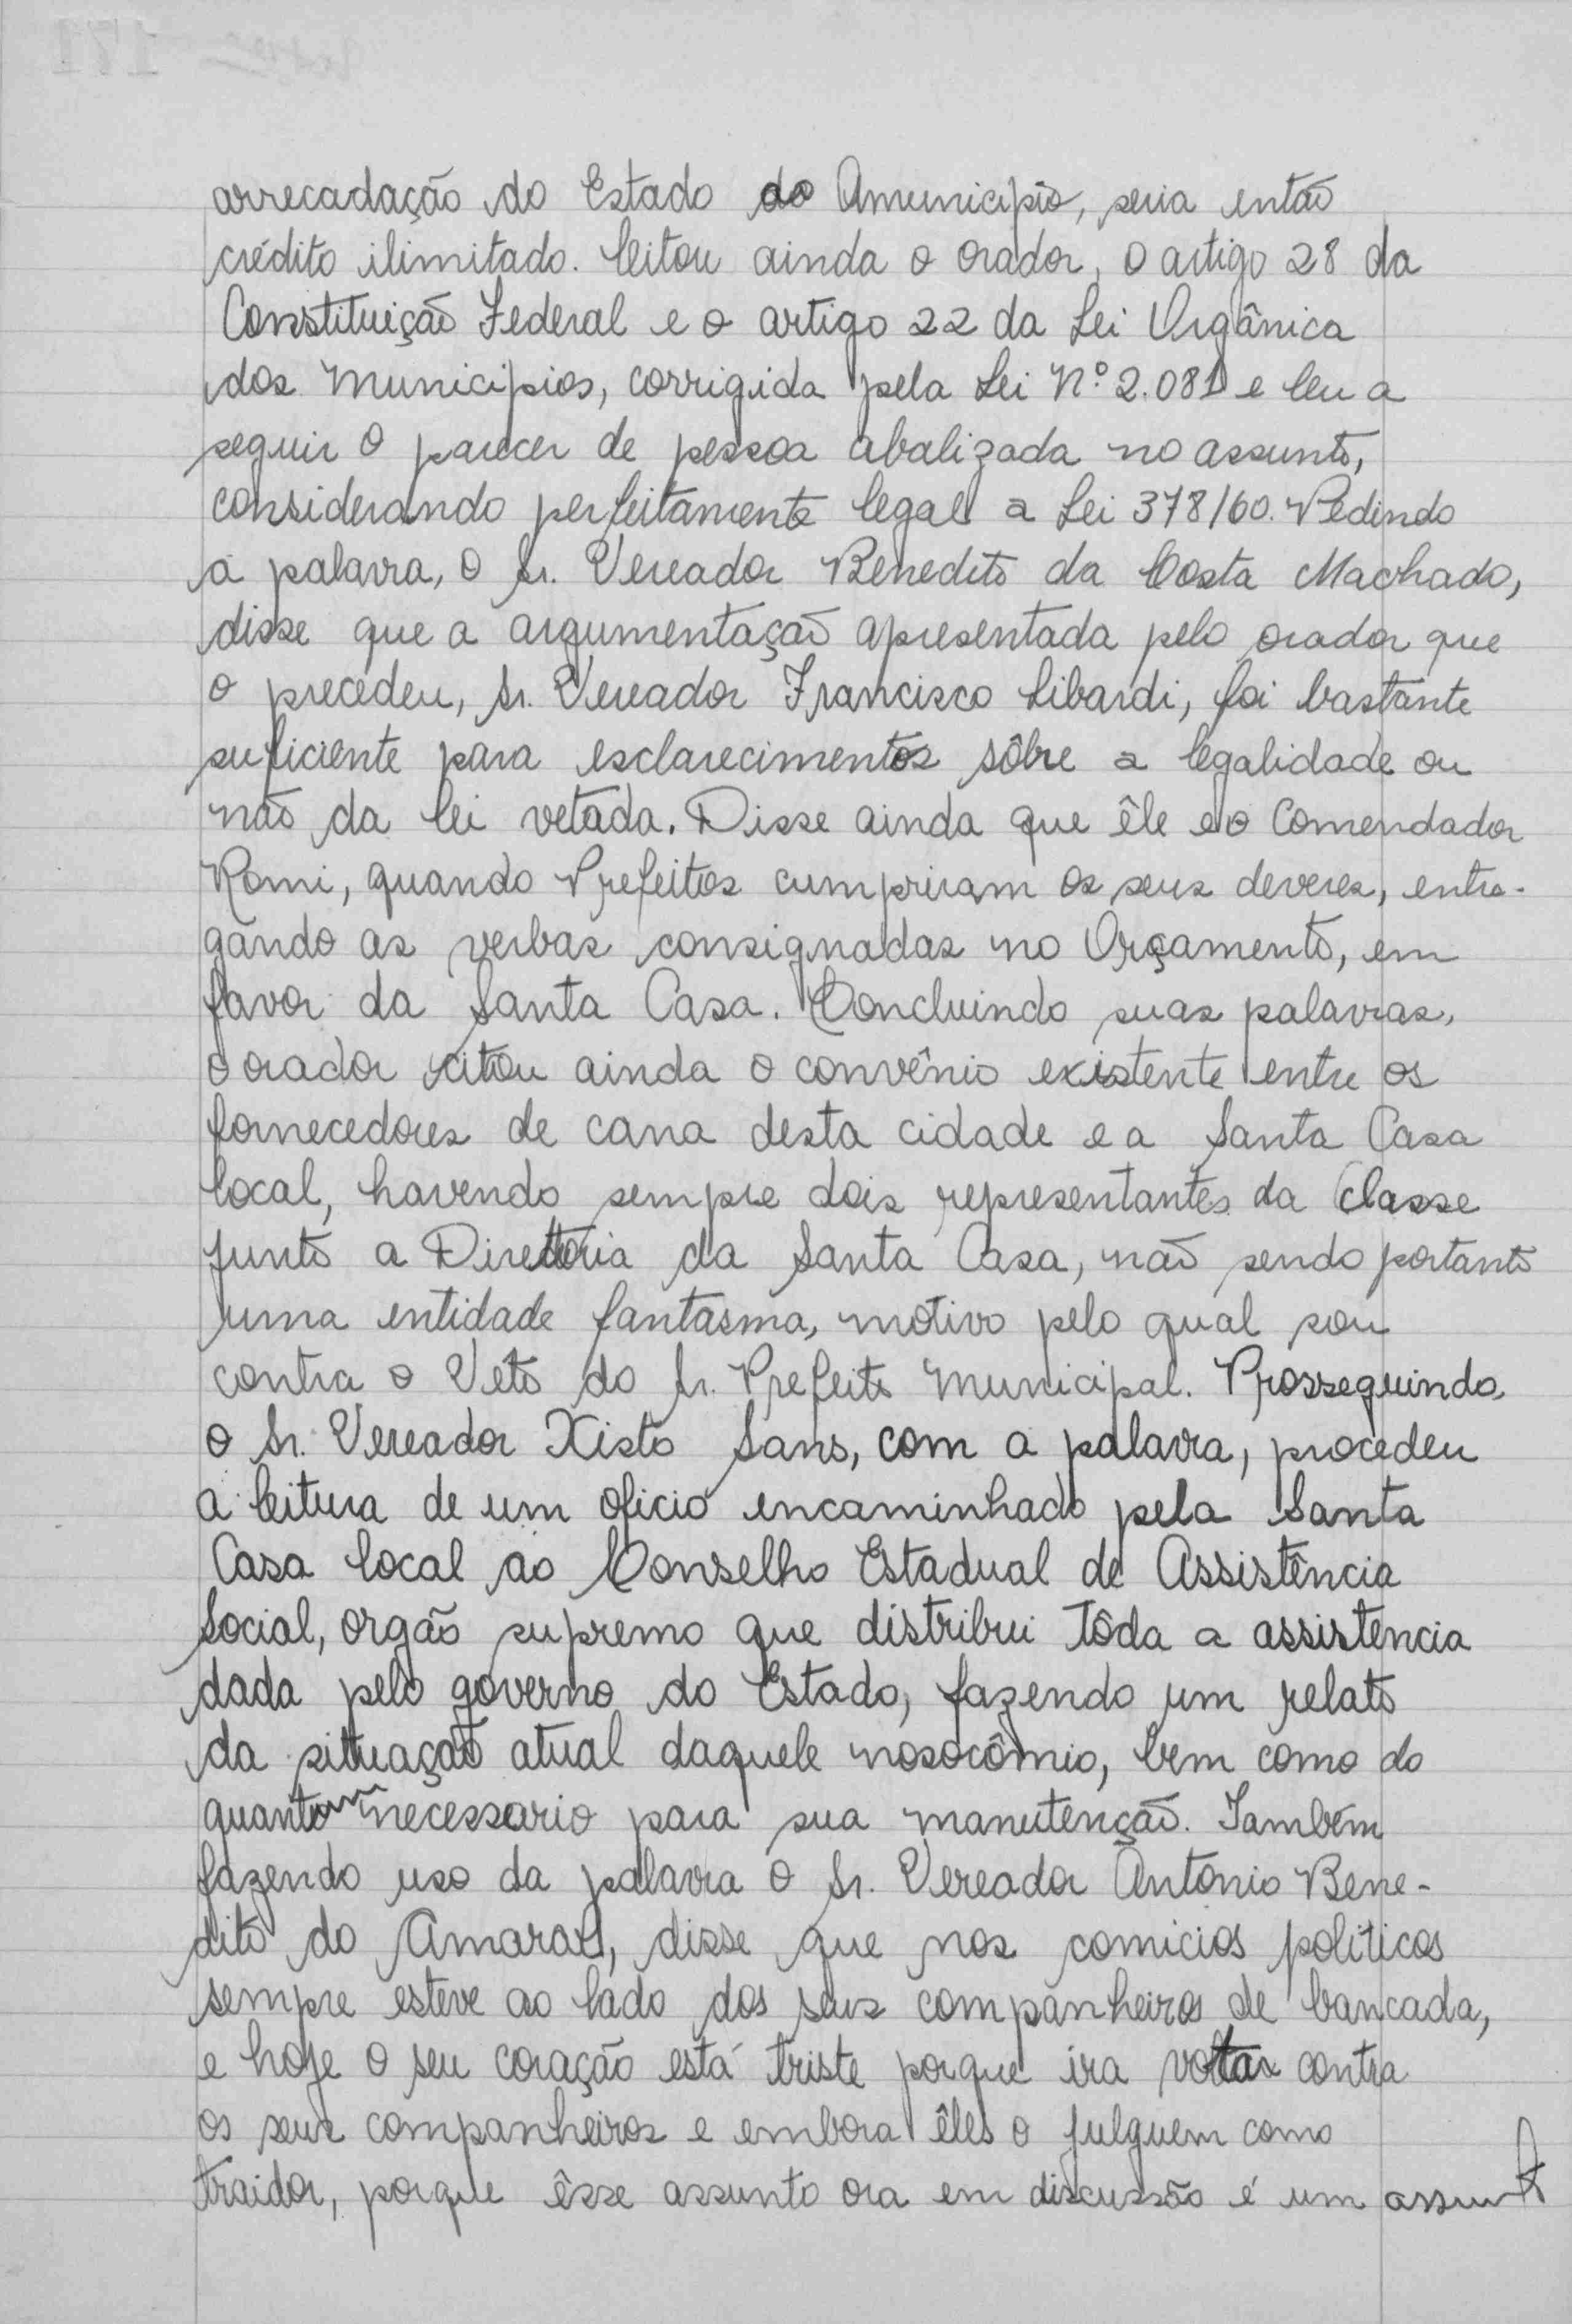 arrecadação do Estado do Amunicipio, seria então
crédito ilimitado. Citou ainda o orador, o artigo 28 da
Constituição Federal e o artigo 22 da Lei Orgânica
dos Municipios, corrigida pela Lei Nº 2.081 e leu a
seguir o parecer de pessoa abalizada no assunto,
considerando perfeitamente legal a Lei 378/60. Pedindo
a palavra, o Sr. Vereador Benedito da Costa Machado,
disse que a argumentação apresentada pelo orador que
o precedeu, Sr. Vereador Francisco Libardi, foi bastante
suficiente para esclarecimentos sôbre a legalidade ou
não da lei vetada. Disse ainda que êle e o Comendador
Romi, quando Prefeitos cumpriram os seus deveres, entre-
gando as verbas consignadas no Orçamento, em
favor da Santa Casa. Concluindo suas palavras,
o orador citou ainda o convênio existente entre os
fornecedores de cana desta cidade e a Santa Casa
local, havendo sempre dois representantes da Classe
junto a Diretoria da Santa Casa, não sendo portanto
uma entidade fantasma, motivo pelo qual sou
contra o Veto do Sr. Prefeito Municipal. Prosseguindo,
o Sr. Vereador Xisto Sans, com a palavra, procedeu
a leitura de um oficio encaminhado pela Santa
Casa local ao Conselho Estadual de Assistência
Social, orgão supremo que distribui tôda a assistencia
dada pelo governo do Estado, fazendo um relato
da situação atual daquele nosocômio, bem como do
quantum necessario para sua manutenção. Também
fazendo uso da palavra o Sr. Vereador Antonio Bene-
dito do Amaral, disse que nos comicios politicos
sempre esteve ao lado dos seus companheiros de bancada,
e hoje o seu coração está triste porque ira votar contra
os seus companheiros e embora êles o julguem como
traidor, porque êsse assunto ora em discussão é um assunto
171